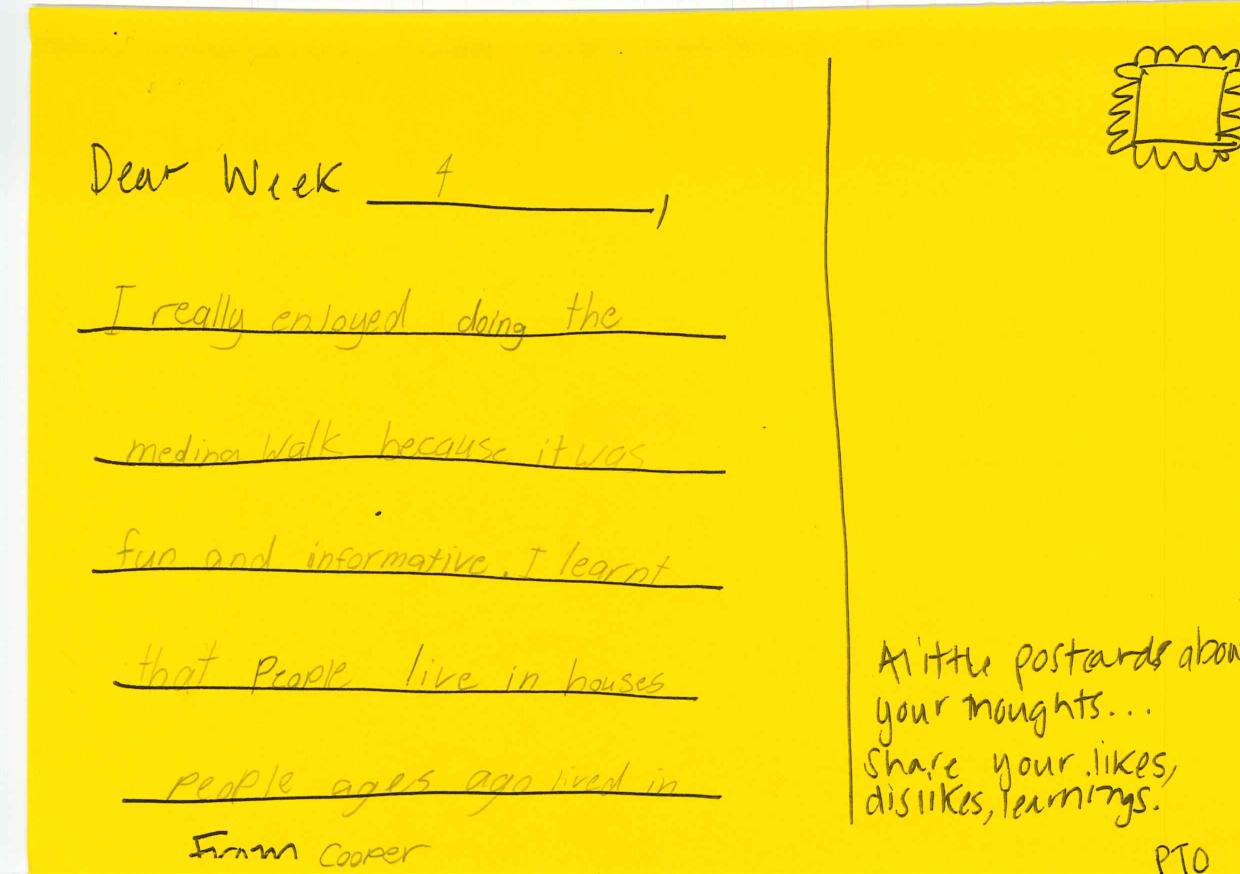 Dear Week 4,
I really enjoyed doing the
medina walk because it was
fun and informative. I learnt
that people live in houses
people ages ago lived in
From Cooper
A little postcards abou
your thoughts...
Share your likes,
dislikes, learnings.
PTO